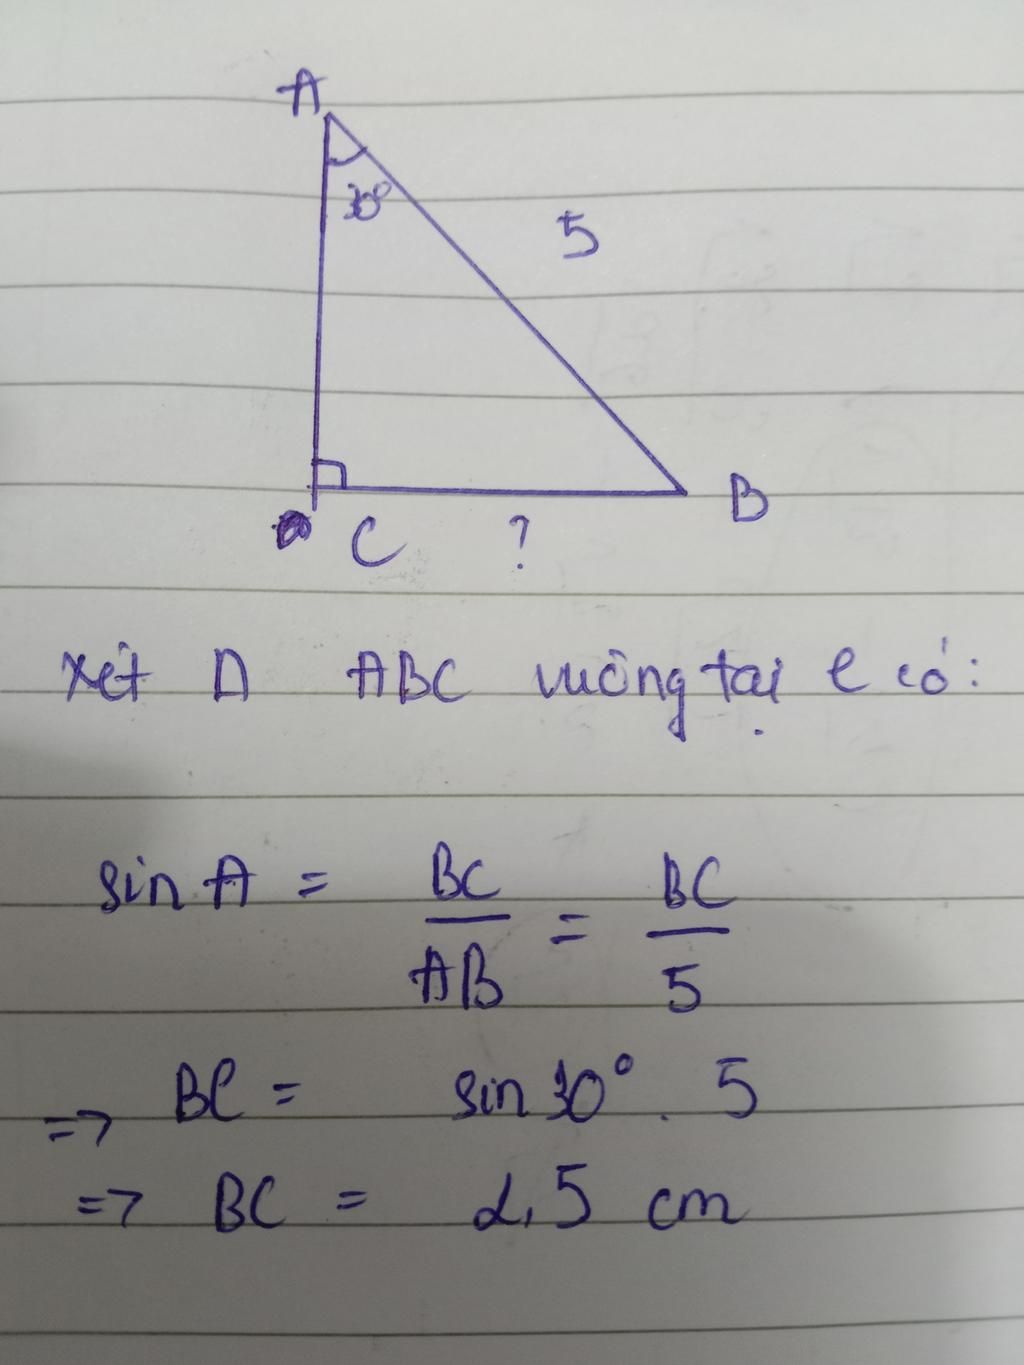 A
30°
5
B
C ?
Xét Δ ABC vuông tại C có:
sin A = BC/AB = BC/5
=> BC = sin 30° . 5
=> BC = 2,5 cm